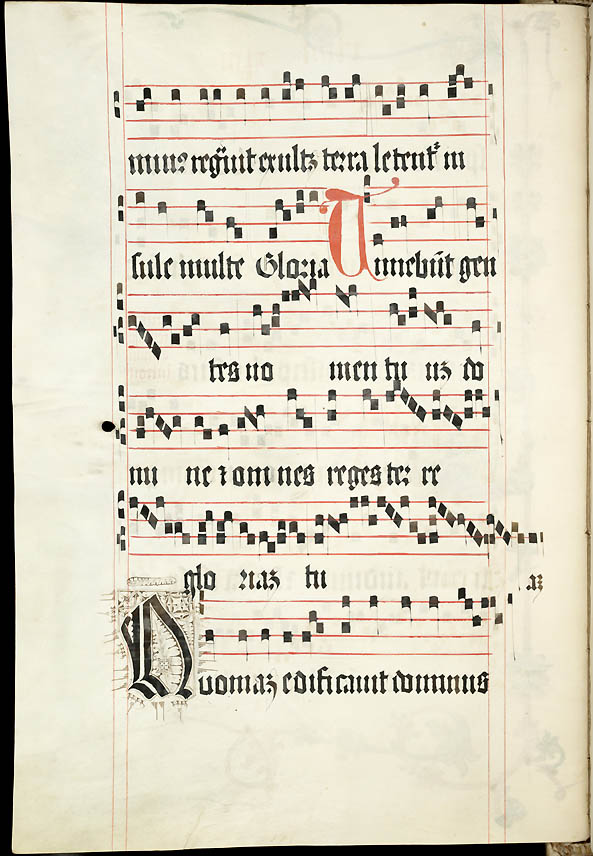 minꝰ regͣuit exultꝫ terra letentr̉ in
sule multe Gloria Timebūt gen
tes no men tu uꝫ do
mi ne ⁊ omnes reges ter re
glo riaꝫ tu aꝫ
Quoniaꝫ edificauit dominus